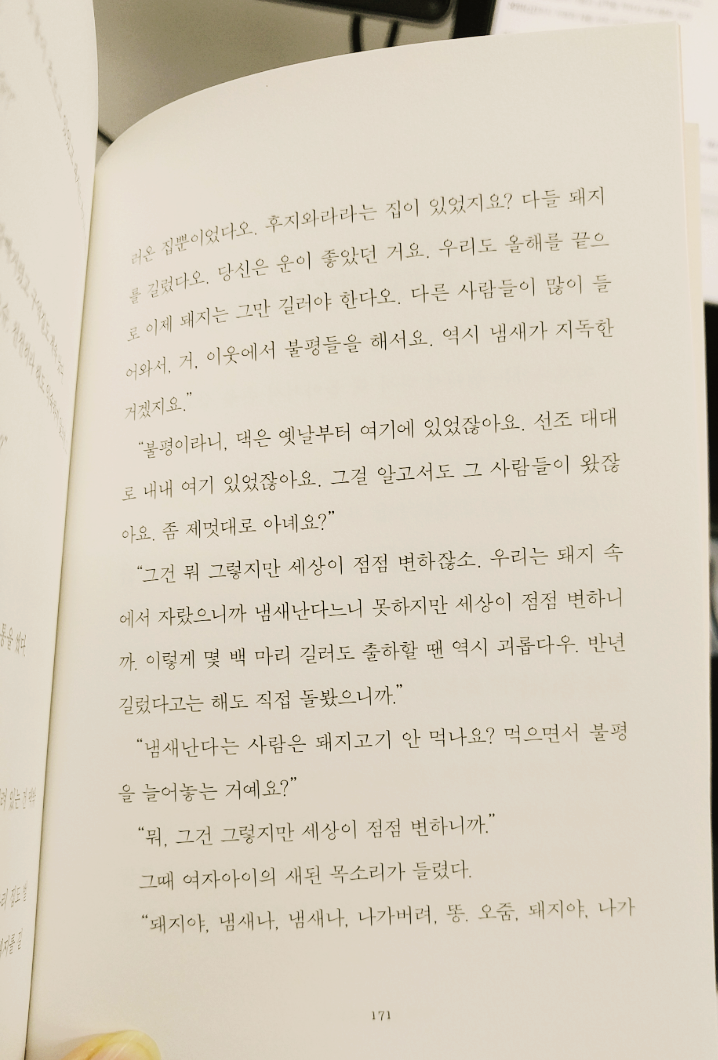 러온 집뿐이었다오. 후지와라라는 집이 있었지요? 다들 돼지
를 길렀다오. 당신은 운이 좋았던 거요. 우리도 올해를 끝으
로 이제 돼지는 그만 길러야 한다오. 다른 사람들이 많이 들
어와서, 거, 이웃에서 불평들을 해서요. 역시 냄새가 지독한
거겠지요.”
“불평이라니, 댁은 옛날부터 여기에 있었잖아요. 선조 대대
로 내내 여기 있었잖아요. 그걸 알고서도 그 사람들이 왔잖
아요. 좀 제멋대로 아녜요?”
“그건 뭐 그렇지만 세상이 점점 변하잖소. 우리는 돼지 속
에서 자랐으니까 냄새난다느니 못하지만 세상이 점점 변하니
까. 이렇게 몇 백 마리 길러도 출하할 땐 역시 괴롭다우. 반년
길렀다고는 해도 직접 돌봤으니까.”
“냄새난다는 사람은 돼지고기 안 먹나요? 먹으면서 불평
을 늘어놓는 거예요?”
“뭐, 그건 그렇지만 세상이 점점 변하니까.”
그때 여자아이의 새된 목소리가 들렸다.
“돼지야, 냄새나, 냄새나, 나가버려, 똥. 오줌, 돼지야, 나가
171